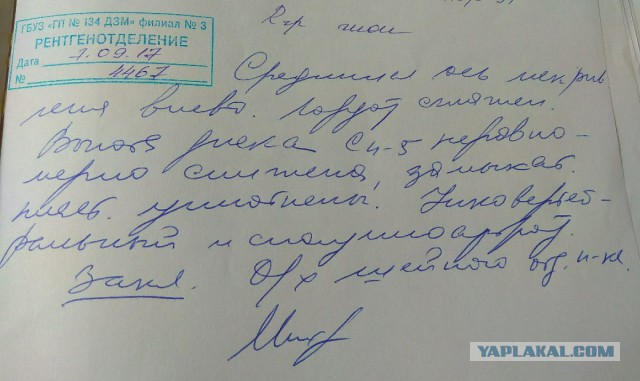 ГБУЗ «ГП № 134 ДЗМ» филиал № 3
РЕНТГЕНОТДЕЛЕНИЕ
Дата 7.09.17
№ 4467
R-гр шоп
Срединная ось искрив
лена влево. Лордоз сглажен.
Высота диска C4-5 неравно-
мерно снижена, замыкат.
пласт. уплотнены. Унковертеб-
ральный и спондилоартроз.
Закл. О/х шейного отд. п-ка.
YAPLAKAL.COM